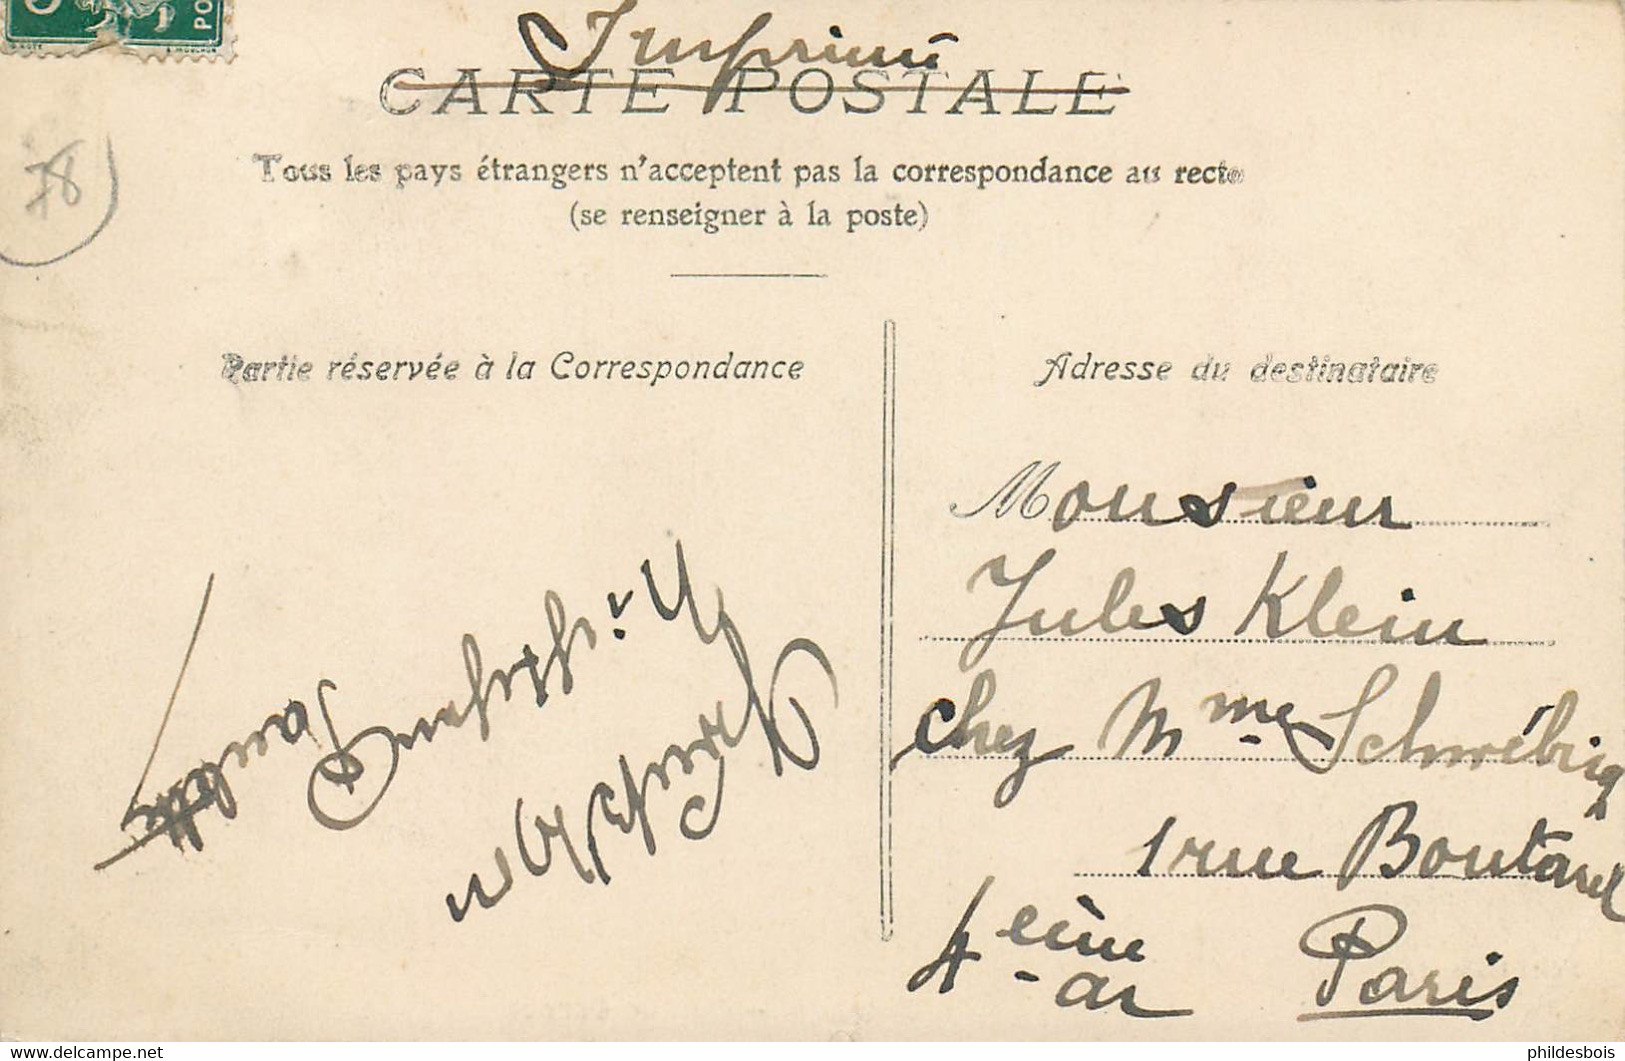 Imprimé
CARTE POSTALE
Tous les pays étrangers n'acceptent pas la correspondance au recto
(se renseigner à la poste)
78
Partie réservée à la Correspondance
Adresse du destinataire
Monsieur
Jules Klein
chez Mme Schwébig
1 rue Boutarel
4ème ar Paris
PO
phildesbois